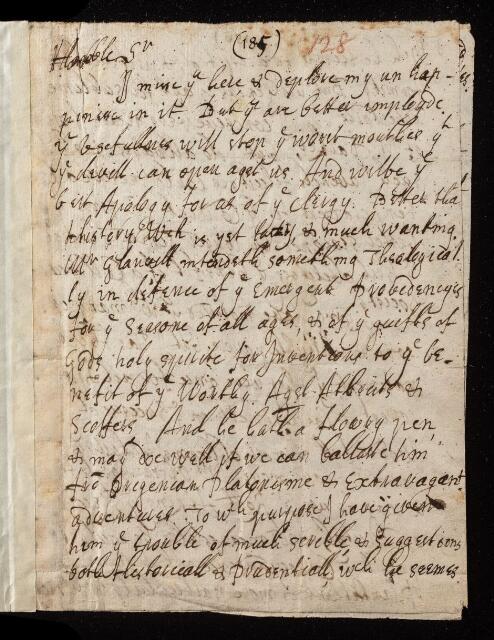 (185) 128
Honble Sr
I misse yu here & deplore my unhap-
pinesse in it. But yu are better imployde
yr Usefullnes will stop ye worst mouthes yt
ye devill can open agst us. And wilbe ye
best Apology for as of ye Clergy. Better tha
History, Wch is yet & much wanting
Mr Glanvill intendeth something Theologicall
ly in defence of ye Emergent Providences
for ye Seasons of all ages, & of ye guifts of
Gods holy spirite for Inventions to ye be-
nefit of ye Worthy. Agst Atheists &
Scoffers And he hath a flowry pen,
& may doe well if we can ballast him
fro Oregenian Platonisme & Extravagant
adventures. To wch purpose I have given
him ye trouble of much scrible & Suggestions
both Historicall & Prudentiall, wch he seemes